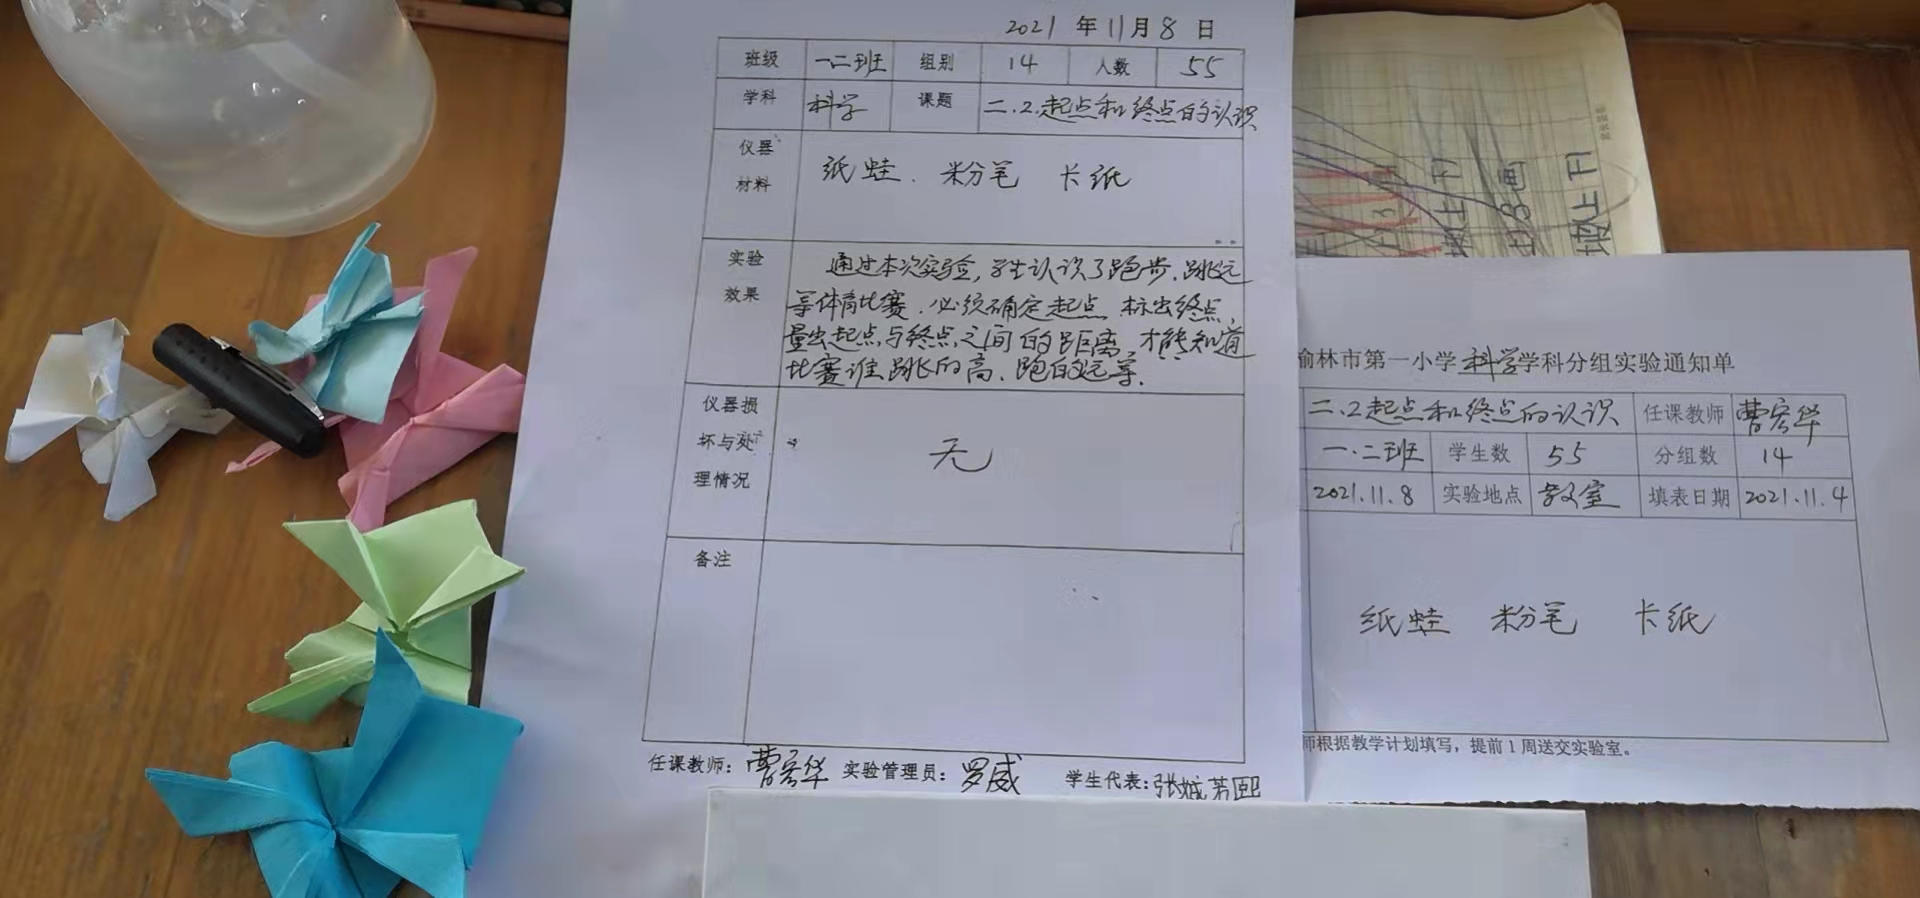 2021 年 11 月 8 日
班级 一二班 组别 14 人数 55
学科 科学 课题 二.2.起点和终点的认识
仪器
材料
纸蛙. 粉笔 卡纸
实验
效果
通过本次实验,学生认识了跑步.跳远
等体育比赛.必须确定起点 标出终点,
量出起点与终点之间的距离,才能知道
比赛谁跳的高、跑的远等.
仪器损
坏与处
理情况
无
备注
任课教师: 曹宏华 实验管理员: 罗威 学生代表:
榆林市第一小学科学学科分组实验通知单
二.2起点和终点的认识 任课教师 曹宏华
一.二班 学生数 55 分组数 14
2021.11.8 实验地点 教室 填表日期 2021.11.4
纸蛙 粉笔 卡纸
师根据教学计划填写,提前1周送交实验室。
坡上下